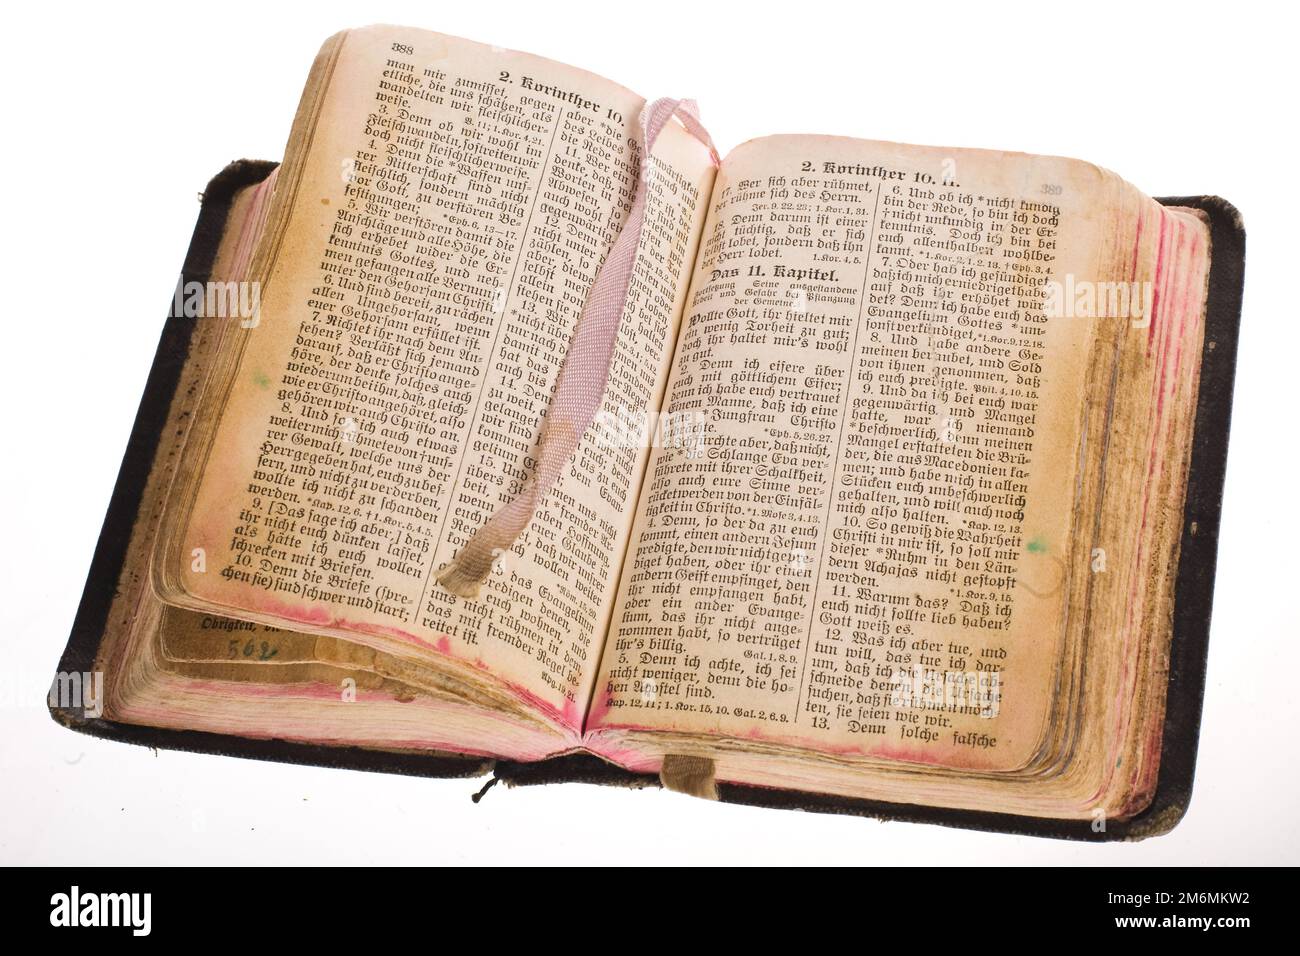 388
2. Korinther 10.
man mir zumisset, gegen
etliche, die uns schätzen, als
wandelten wir fleischlicher-
weise.
3. Denn ob wir wohl im
Fleisch wandeln, so streiten wir
doch nicht fleischlicherweise.
4. Denn die *Waffen uns-
rer Ritterschaft sind nicht
fleischlich, sondern mächtig
vor Gott, zu verstören Be-
festigungen.
*Eph. 6, 13–17.
5. Wir verstören damit die
Anschläge und alle Höhe, die
sich erhebet wider die Er-
kenntnis Gottes und neh-
men gefangen alle Vernunft
unter den Gehorsam Christi
6. Und sind bereit, zu rächen
allen Ungehorsam, wenn
euer Gehorsam erfüllet ist.
7. Richtet ihr nach dem An-
sehen? Verläßt sich jemand
darauf, daß er Christo ange-
höre, der denke solches auch
wiederum bei ihm, daß, gleich-
wie er Christo angehöret, also
gehören wir auch Christo an.
8. Und so *ich auch etwas
weiter mich rühmete von †uns-
rer Gewalt, welche uns der
Herr gegeben hat, euch zu bes-
sern, und nicht zu verderben,
wollte ich nicht zu schanden
werden. *Kap. 12, 6. † 1. Kor. 5, 4. 5.
9. [Das sage ich aber,] daß
ihr nicht euch dünken lasset,
als hätte ich euch wollen
schrecken mit Briefen.
10. Denn die Briefe (spre-
chen sie) sind schwer und stark-
aber *die
des Leibes
die Rede
11. Wer
denke, daß,
Worten
Abwesen, so
auch wohl
gegenwärtig.
12.
nicht unter
zählen, so
aber, diewe
selbst
allein von
stehen sie
13.
*nicht über
damit uns
hat auch
bis
14.
zu weit,
gelanget
kommen
15. Und
übers
beit,
wenn
euch
men uns nicht
*fremder
Hoffnung,
Glaube in
wir unsrer
wollen weiter
*Röm. 15, 20.
das Evangelium
predigen denen, die
euch wohnen, und
uns nicht rühmen in dem,
das mit fremder Regel be-
reitet ist.
Apg. 15, 21.
Obrigkeit, die
562
2. Korinther 10. 11.
389
17. Wer sich aber rühmet,
der rühme sich des Herrn.
Jer. 9, 22. 23; 1. Kor. 1, 31.
18. Denn darum ist einer
nicht tüchtig, daß er sich
selbst lobet, sondern daß ihn
der Herr lobet.
1. Kor. 4, 5.
Das 11. Kapitel.
Fortsetzung. Seine ausgestandene
Arbeit und Gefahr bei Pflanzung
der Gemeine.
Wollte Gott, ihr hieltet mir
ein wenig Torheit zu gut;
doch ihr haltet mir's wohl
zu gut.
2. Denn ich eifere über
euch mit göttlichem Eifer;
denn ich habe euch vertrauet
einem Manne, daß ich eine
reine *Jungfrau Christo
brächte.
*Eph. 5, 26. 27.
3. Ich fürchte aber, daß nicht,
*wie die Schlange Eva ver-
führete mit ihrer Schalkheit,
also auch eure Sinne ver-
rücket werden von der Einfäl-
tigkeit in Christo. *1. Mose 3, 4. 13.
4. Denn, so der da zu euch
kommt, einen andern Jesum
predigte, den wir nicht gepre-
diget haben, oder ihr einen
andern Geist empfinget, den
ihr nicht empfangen habt,
oder ein ander Evange-
lium, das ihr nicht ange-
nommen habt, so vertrüget
ihr's billig.
Gal. 1, 8. 9.
5. Denn ich achte, ich sei
nicht weniger, denn die ho-
hen Apostel sind.
Kap. 12, 11; 1. Kor. 15, 10. Gal. 2, 6. 9.
6. Und ob ich *nicht kundig
bin der Rede, so bin ich doch
†nicht unkundig in der Er-
kenntnis. Doch ich bin bei
euch allenthalben wohlbe-
kannt. *1. Kor. 2, 1. 2. 13. † Eph. 3, 4.
7. Oder hab ich gesündiget,
daß ich mich erniedriget habe,
auf daß ihr erhöhet wür-
det? Denn ich habe euch das
Evangelium Gottes *um-
sonst verkündiget, *1. Kor. 9, 12. 18.
8. Und habe andere Ge-
meinen beraubet, und Sold
von ihnen genommen, daß
ich euch predigte. Phil. 4, 10. 15.
9. Und da ich bei euch war
gegenwärtig, und Mangel
hatte, war ich niemand
*beschwerlich, denn meinen
Mangel erstatteten die Brü-
der, die aus Macedonien ka-
men; und habe mich in allen
Stücken euch unbeschwerlich
gehalten, und will auch noch
mich also halten. *Kap. 12, 13.
10. So gewiß die Wahrheit
Christi in mir ist, so soll mir
dieser *Ruhm in den Län-
dern Achajas nicht gestopft
werden.
*1. Kor. 9, 15.
11. Warum das? Daß ich
euch nicht sollte lieb haben?
Gott weiß es.
12. Was ich aber tue, und
tun will, das tue ich dar-
um, daß ich die Ursache ab-
schneide denen, die Ursache
suchen, daß sie rühmen möch-
ten, sie seien wie wir.
13. Denn solche falsche
alamy
Image ID: 2M6MKW2
www.alamy.com